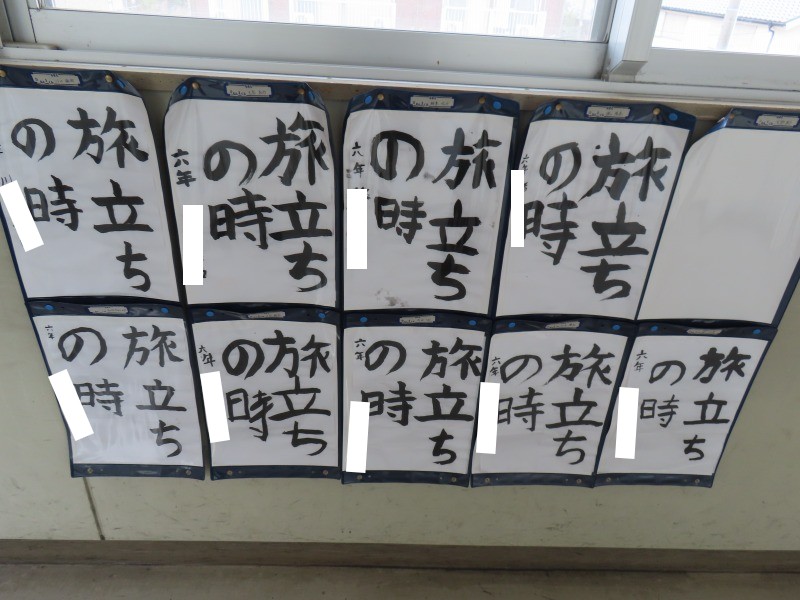 旅立ち
の時
六年
旅立ち
の時
六年
旅立ち
の時
六年
旅立ち
の時
旅立ち
の時
六年
旅立ち
の時
六年
旅立ち
の時
六年
旅立ち
の時
六年
旅立ち
の時
六年